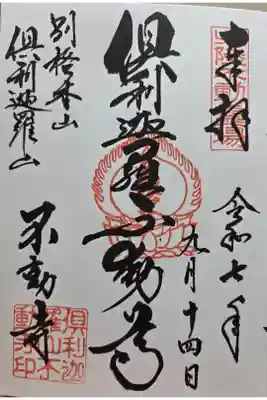 奉拝
令和七年
九月十四日
俱利迦羅不動尊
別格本山
俱利迦羅山
不動寺
俱利迦
羅山不
動寺印